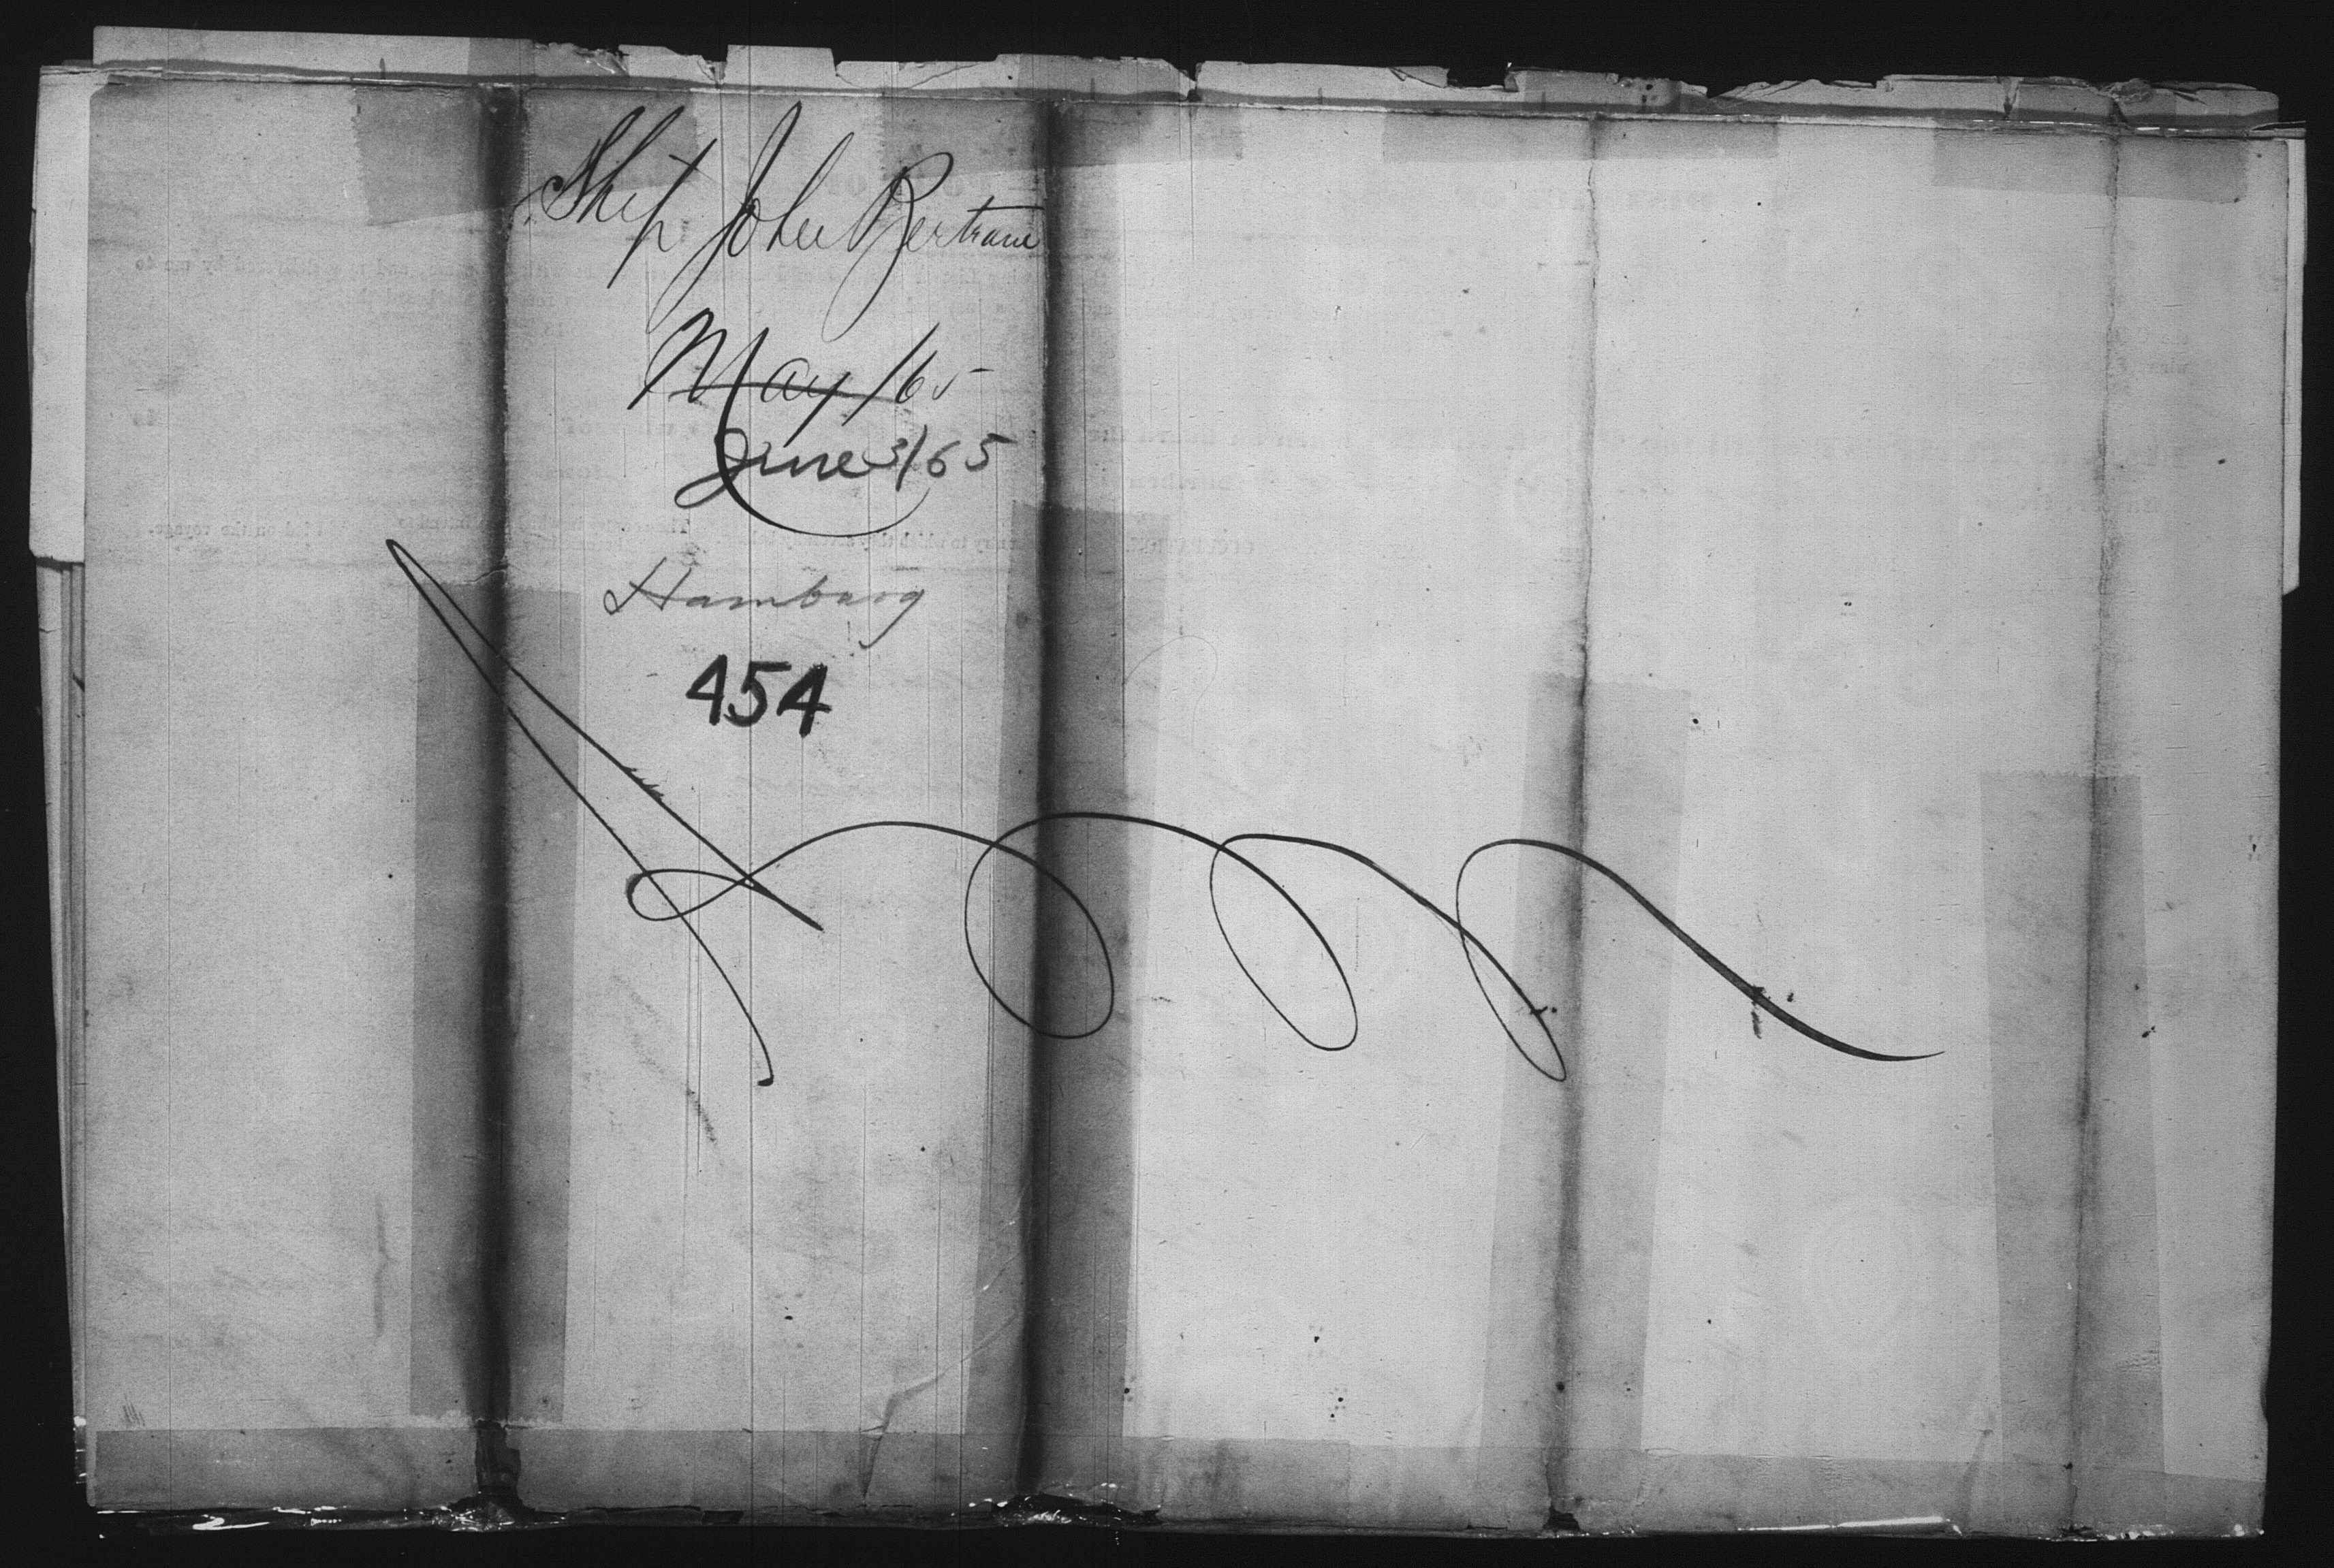 Ship John Bertram
May /65
June 3/65
Hamburg
454